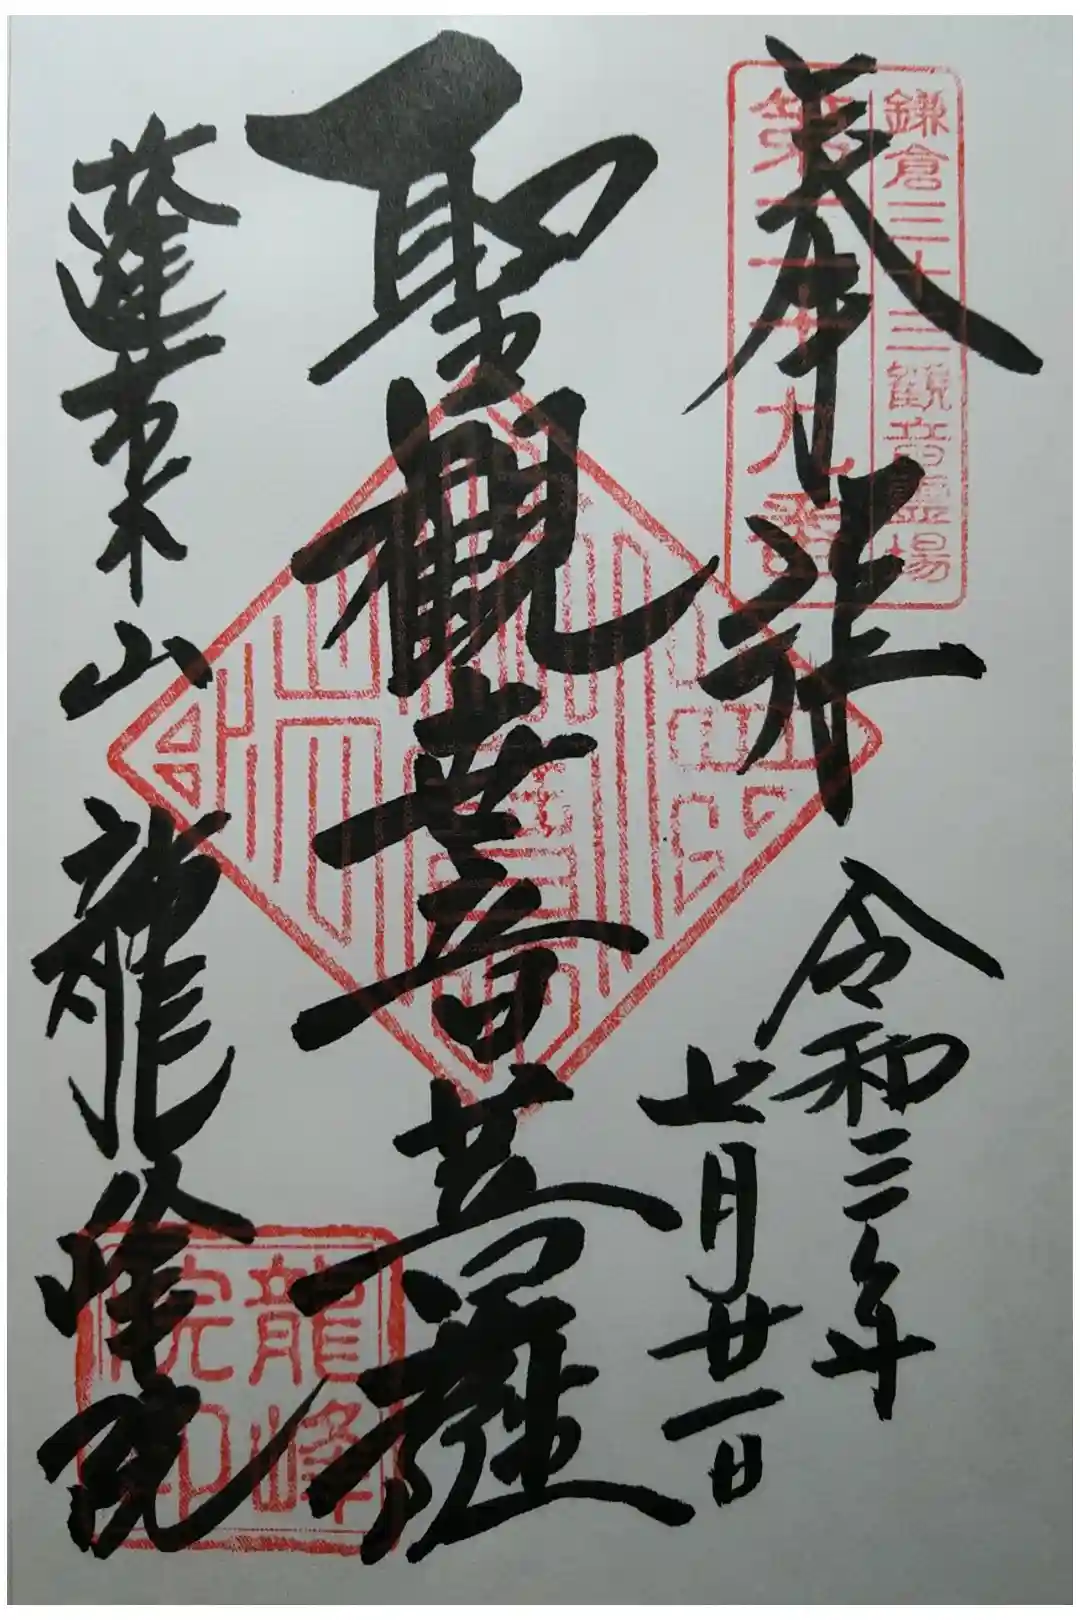 鎌倉三十三観音霊場
第二十九番
奉拝
令和三年
七月廿一日
聖觀世音菩薩
蓬莱山
龍峰院
龍峰院印